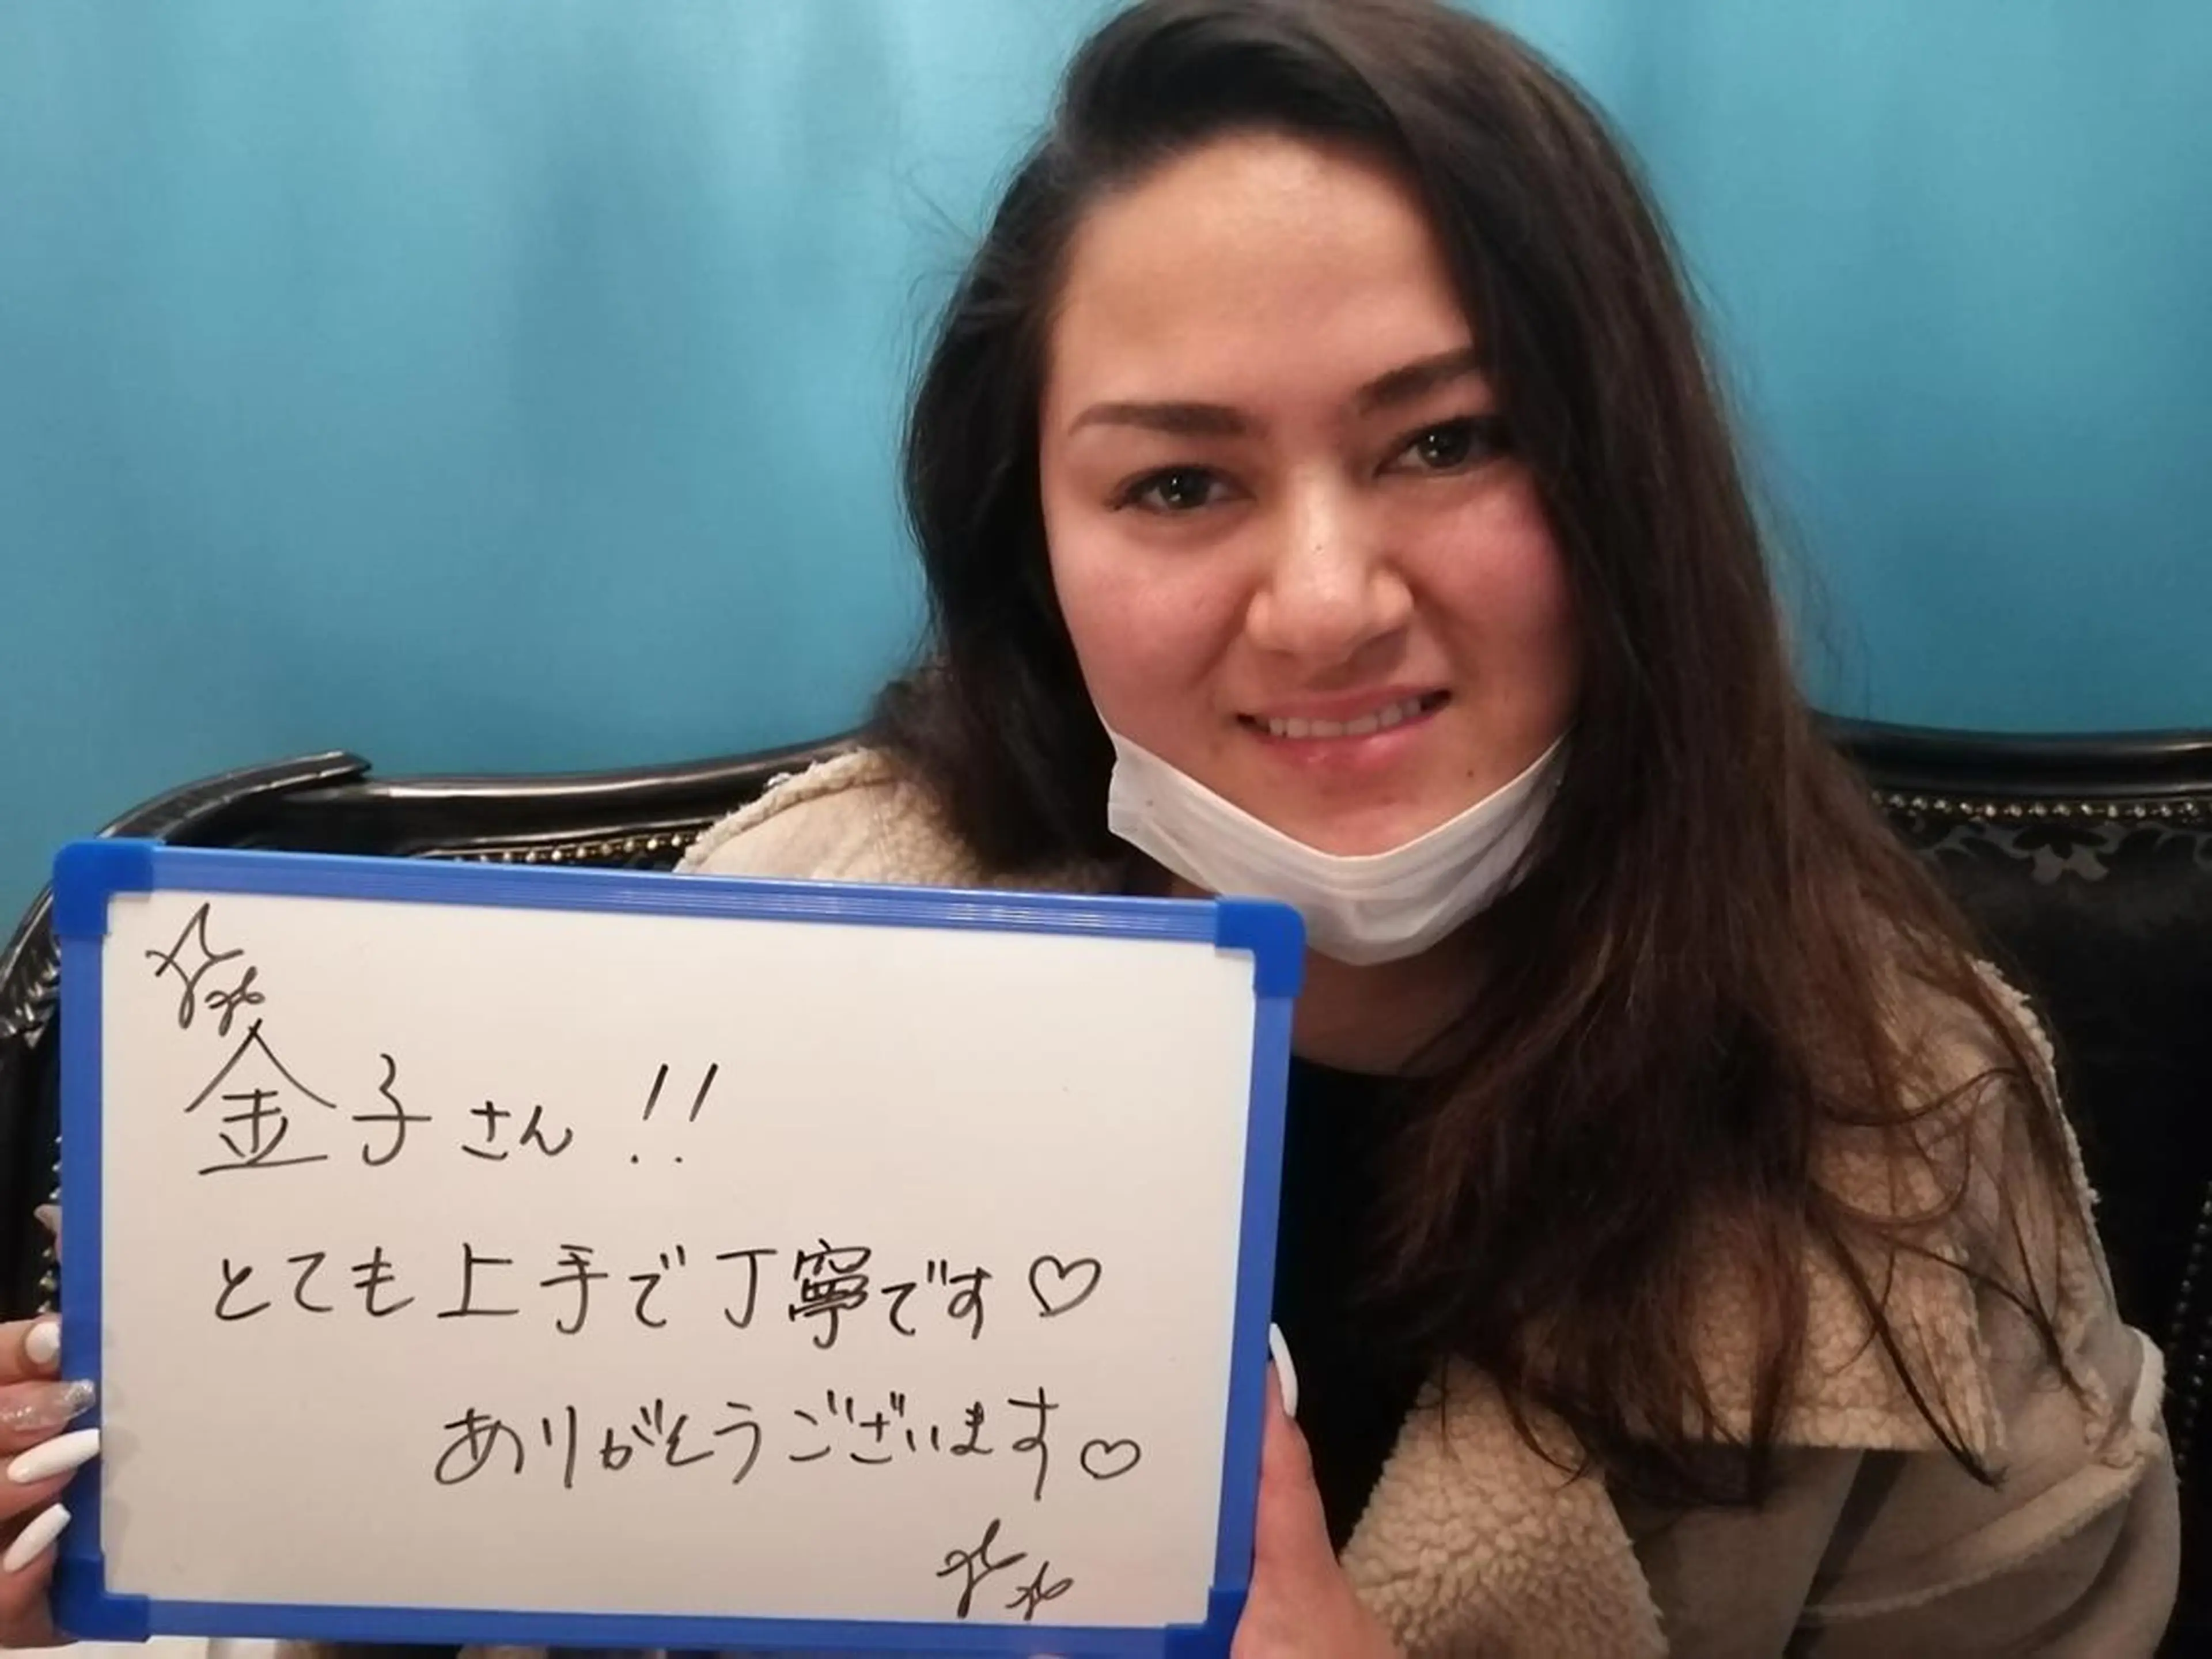 金子さん!!
とても上手で丁寧です♡
ありがとうございます♡